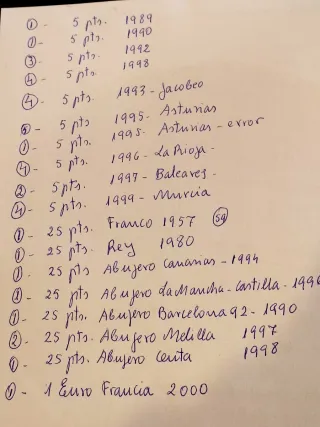 ① - 5 pts. 1989
① - 5 pts. 1990
③ - 5 pts. 1992
④ - 5 pts. 1998
④ - 5 pts. 1993 - Jacobeo
⑧ - 5 pts 1995 - Asturias
① - 5 pts 1995 - Asturias - error
④ - 5 pts. 1996 - La Rioja -
② - 5 pts. 1997 - Baleares -
④ - 5 pts. 1999 - Murcia
① - 25 pts. Franco 1957 59
① - 25 pts. Rey 1980
① - 25 pts Abujero Canarias - 1994
① - 25 pts Abujero La Mancha - Castilla - 1996
① - 25 pts. Abujero Barcelona 92 - 1990
② - 25 pts. Abujero Melilla 1997
① - 25 pts. Abujero Ceuta 1998
① - 1 Euro Francia 2000